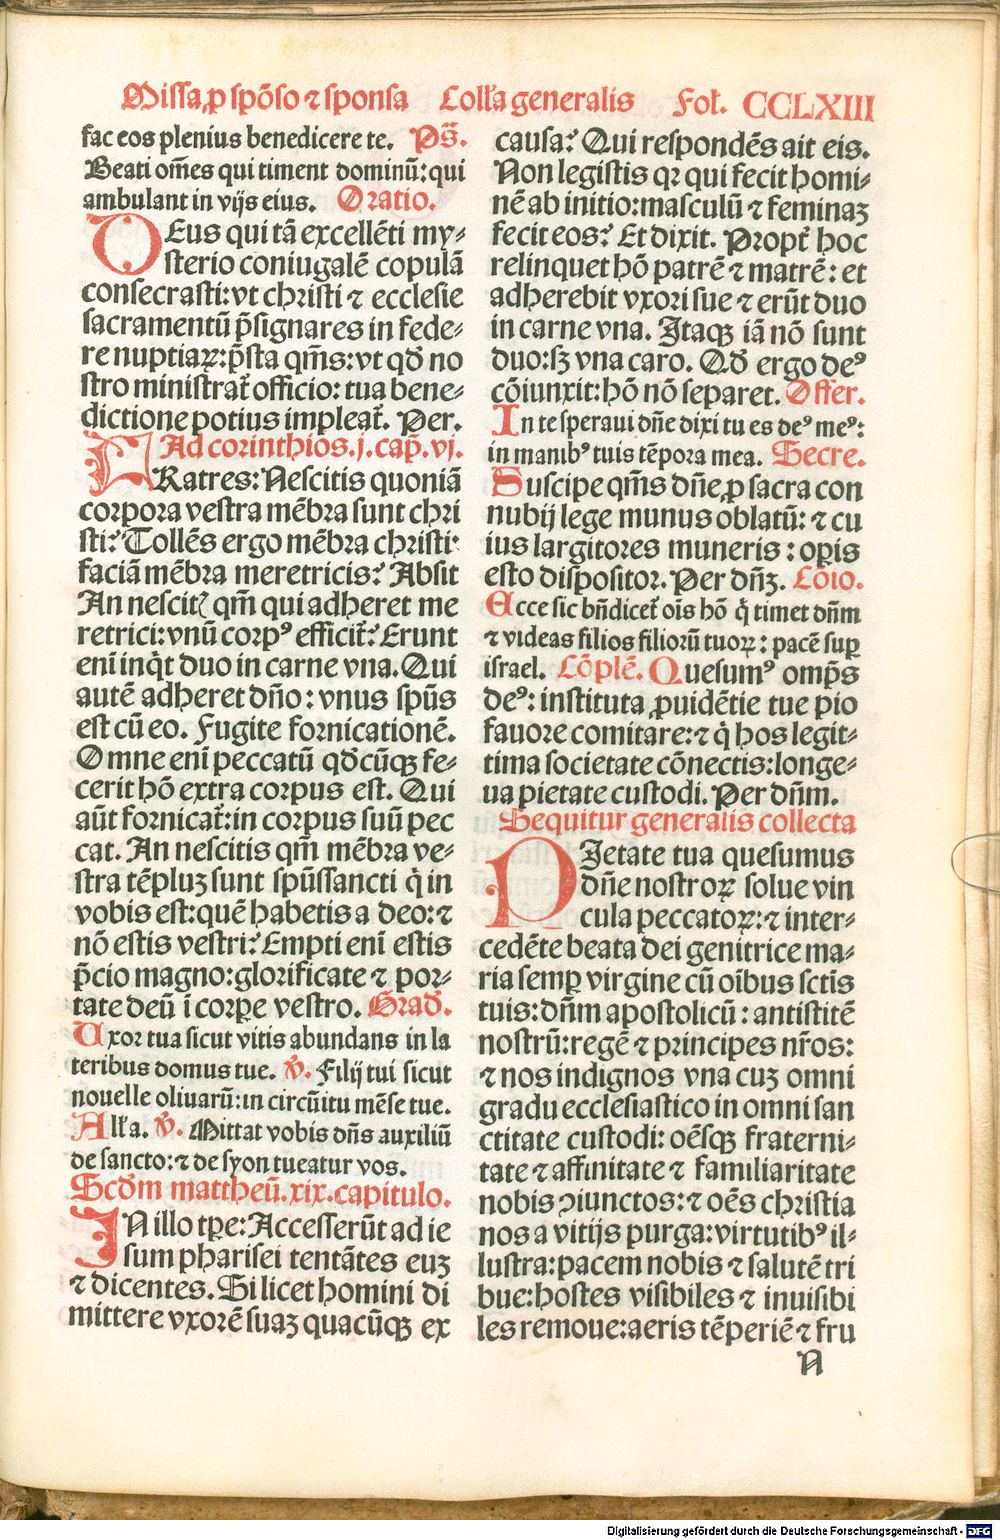 Missa ꝓ spōso ⁊ sponsa Coll'a generalis Fol. CCLXIII
fac eos plenius benedicere te. Ps̄.
Beati om̄es qui timent dominū: qui
ambulant in vijs eius. Oratio.
DEus qui tā excellēti my⸗
sterio coniugalē copulā
consecrasti: vt christi ⁊ ecclesie
sacramentū p̄signares in fede⸗
re nuptiaꝝ: p̄sta qm̄s: vt qd̄ no
stro ministrat᷑ officio: tua bene⸗
dictione potius impleat᷑. Per.
Ad corinthios. j. cap̄. vj.
FRatres: Nescitis quoniā
corpora vestra mēbra sunt chri
sti? Tollēs ergo mēbra christi:
faciā mēbra meretricis? Absit
An nescitꝭ qm̄ qui adheret me
retrici: vnū corpꝰ efficit᷑? Erunt
enī inq̇t duo in carne vna. Qui
autē adheret dn̄o: vnus spūs
est cū eo. Fugite fornicationē.
Omne enī peccatū qd̄cūqꝫ fe⸗
cerit hō extra corpus est. Qui
aūt fornicat᷑: in corpus suū pec
cat. An nescitis qm̄ mēbra ve⸗
stra tēpluꝫ sunt spūssancti q̇ in
vobis est: quē habetis a deo: ⁊
nō estis vestri? Empti enī estis
p̄cio magno: glorificate ⁊ por⸗
tate deū ī corꝑe vestro. Grad̄.
Uxor tua sicut vitis abundans in la
teribus domus tue. v̄. Filij tui sicut
nouelle oliuarū: in circūitu mēse tue.
All'a. v̄. Mittat vobis dn̄s auxiliū
de sancto: ⁊ de syon tueatur vos.
Scd̄m mattheū. xix. capitulo.
IN illo tꝑe: Accesserūt ad ie
sum pharisei tentātes euꝫ
⁊ dicentes. Si licet homini di
mittere vxorē suaꝫ quacūqꝫ ex
causa? Qui respondēs ait eis.
Non legistis qꝛ qui fecit homi⸗
nē ab initio: masculū ⁊ feminaꝫ
fecit eos? Et dixit. Propt᷑ hoc
relinquet hō patrē ⁊ matrē: et
adherebit vxori sue ⁊ erūt duo
in carne vna. Itaqꝫ iā nō sunt
duo: sꝫ vna caro. Qd̄ ergo deꝰ
cōiunxit: hō nō separet. Offer.
In te speraui dn̄e dixi tu es deꝰ meꝰ:
in manibꝰ tuis tēpora mea. Secre.
Suscipe qm̄s dn̄e ꝓ sacra con
nubij lege munus oblatū: ⁊ cu
ius largitores muneris: oꝑis
esto dispositor. Per dn̄ꝫ. Cōio.
Ecce sic bn̄dicet᷑ oīs hō q̇ timet dn̄m
⁊ videas filios filiorū tuoꝝ: pacē suꝑ
israel. Cōplē. Quesumꝰ omp̄s
deꝰ: instituta ꝓuidētie tue pio
fauore comitare: ⁊ q̇ hos legit⸗
tima societate cōnectis: longe⸗
ua pietate custodi. Per dn̄m.
Sequitur generalis collecta
PIetate tua quesumus
dn̄e nostroꝝ solue vin
cula peccatoꝝ: ⁊ inter⸗
cedēte beata dei genitrice ma⸗
ria semꝑ virgine cū oībus sctīs
tuis: dn̄m apostolicū: antistitē
nostrū: regē ⁊ principes nr̄os:
⁊ nos indignos vna cuꝫ omni
gradu ecclesiastico in omni san
ctitate custodi: oēsqꝫ fraterni⸗
tate ⁊ affinitate ⁊ familiaritate
nobis ꝯiunctos: ⁊ oēs christia
nos a vitijs purga: virtutibꝰ il⸗
lustra: pacem nobis ⁊ salutē tri
bue: hostes visibiles ⁊ inuisibi
les remoue: aeris tēperiē ⁊ fru
N
Digitalisierung gefördert durch die Deutsche Forschungsgemeinschaft - DFG